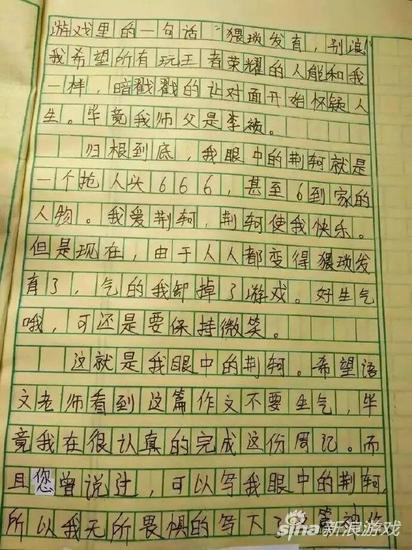 游戏里的一句话“猥琐发育，别浪！
我希望所有玩王者荣耀的人能和我
一样，暗戳戳的让对面开始怀疑人
生。毕竟我师父是李被。
归根到底，我眼中的荆轲就是
一个抢人头666，甚至6到家的
人物。我爱荆轲，荆轲使我快乐。
但是现在，由于人人都变得猥琐发
育了，气的我卸掉了游戏。好生气
哦，可还是要保持微笑。
这就是我眼中的荆轲。希望语
文老师看到这篇作文不要生气，毕
竟我在很认真的完成这份周记。而
且您曾说过，可以写我眼中的荆轲，
所以我无所畏惧的写下了
sina新浪游戏